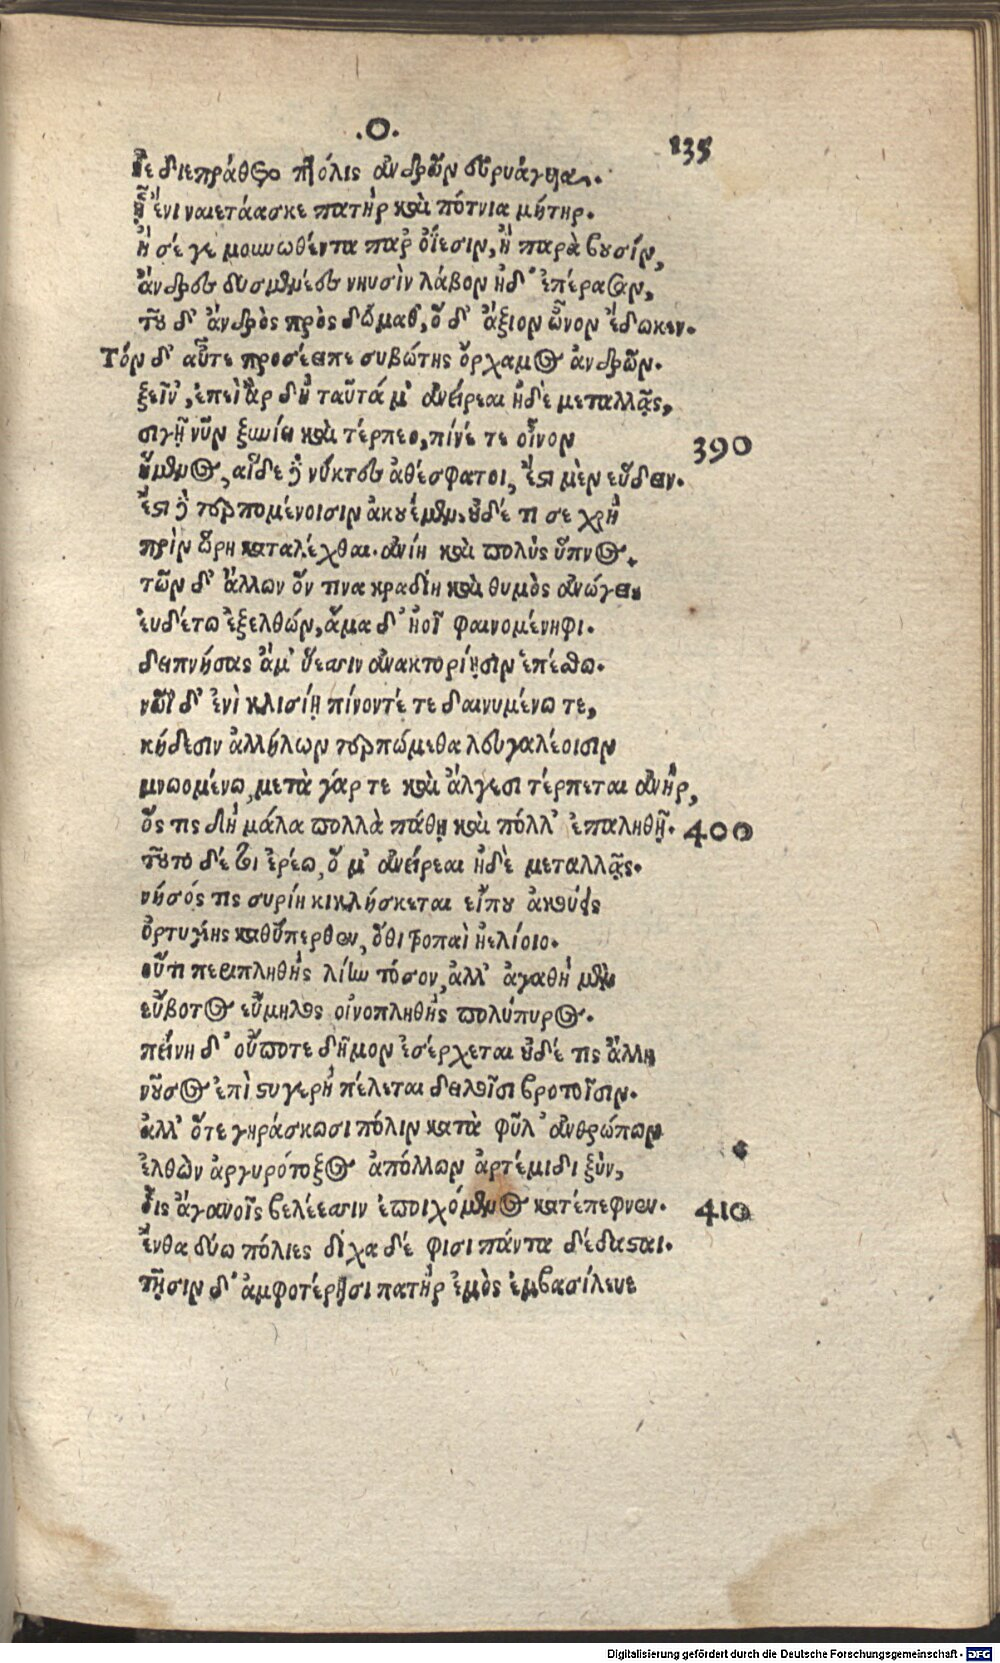 .Ο.
135
ἠὲ διεπράθετο πτόλις ἀνδρῶν εὐρυάγυια.
ᾗ ἔνι ναιετάασκε πατὴρ καὶ πότνια μήτηρ.
ἢ σέ γε μουνωθέντα παρ' ὀΐεσιν, ἢ παρὰ βουσίν,
ἄνδρες δυσμενέες νηυσὶν λάβον ἠδ' ἐπέρασαν,
τοῦ δ' ἀνδρὸς πρὸς δώμαθ', ὅ δ' ἄξιον ὦνον ἔδωκεν.
Τὸν δ' αὖτε προσέειπε συβώτης ὄρχαμος ἀνδρῶν.
ξεῖν', ἐπεὶ ἂρ δὴ ταῦτά μ' ἀνείρεαι ἠδὲ μεταλλᾷς,
σιγῇ νῦν ξυνίει καὶ τέρπεο, πίνέ τε οἶνον
390
ἥμενος, αἵδε δὲ νύκτες ἀθέσφατοι, ἔστι μὲν εὕδειν.
ἔστι δὲ τερπομένοισιν ἀκουέμεν, οὐδέ τί σε χρὴ
πρὶν ὥρη καταλέχθαι. ἀνίη καὶ πολὺς ὕπνος.
τῶν δ' ἄλλων ὅν τινα κραδίη καὶ θυμὸς ἀνώγει
εὑδέτω ἐξελθών, ἅμα δ' ἠοῖ φαινομένηφι.
δειπνήσας ἅμ' ὕεσσιν ἀνακτορίῃσιν ἑπέσθω.
νῶϊ δ' ἐνὶ κλισίῃ πίνοντέ τε δαινυμένω τε,
κήδεσιν ἀλλήλων τερπώμεθα λευγαλέοισιν
μνωομένω, μετὰ γάρ τε καὶ ἄλγεσι τέρπεται ἀνήρ,
ὅς τις δὴ μάλα πολλὰ πάθῃ καὶ πόλλ' ἐπαληθῇ. 400
τοῦτο δέ τοι ἐρέω, ὅ μ' ἀνείρεαι ἠδὲ μεταλλᾷς.
νῆσός τις συρίη κικλήσκεται εἴ που ἀκούεις
ὀρτυγίης καθύπερθεν, ὅθι τροπαὶ ἠελίοιο.
οὔτι περιπληθὴς λίην τόσον, ἀλλ' ἀγαθὴ μὲν
εὔβοτος εὔμηλος οἰνοπληθὴς πολύπυρος.
πείνη δ' οὔποτε δῆμον ἐσέρχεται οὐδέ τις ἄλλη
νοῦσος ἐπὶ στυγερὴ πέλεται δειλοῖσι βροτοῖσιν.
ἀλλ' ὅτε γηράσκωσι πόλιν κατὰ φῦλ' ἀνθρώπων
ἐλθὼν ἀργυρότοξος ἀπόλλων ἀρτέμιδι ξὺν,
οἷς ἀγανοῖς βελέεσσιν ἐποιχόμενος κατέπεφνεν. 410
ἔνθα δύω πόλιες δίχα δέ φισι πάντα δέδασται.
τῇσιν δ' ἀμφοτέρῃσι πατὴρ ἐμὸς ἐμβασίλευε
Digitalisierung gefördert durch die Deutsche Forschungsgemeinschaft - DFG